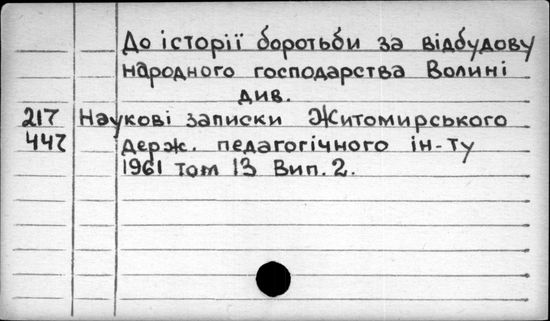 До історії боротьби за відбудову
народного господарства Волині
див.
217 Наукові записки Житомирського
447 держ. педагогічного ін-ту
1961 том 13 Вип. 2.